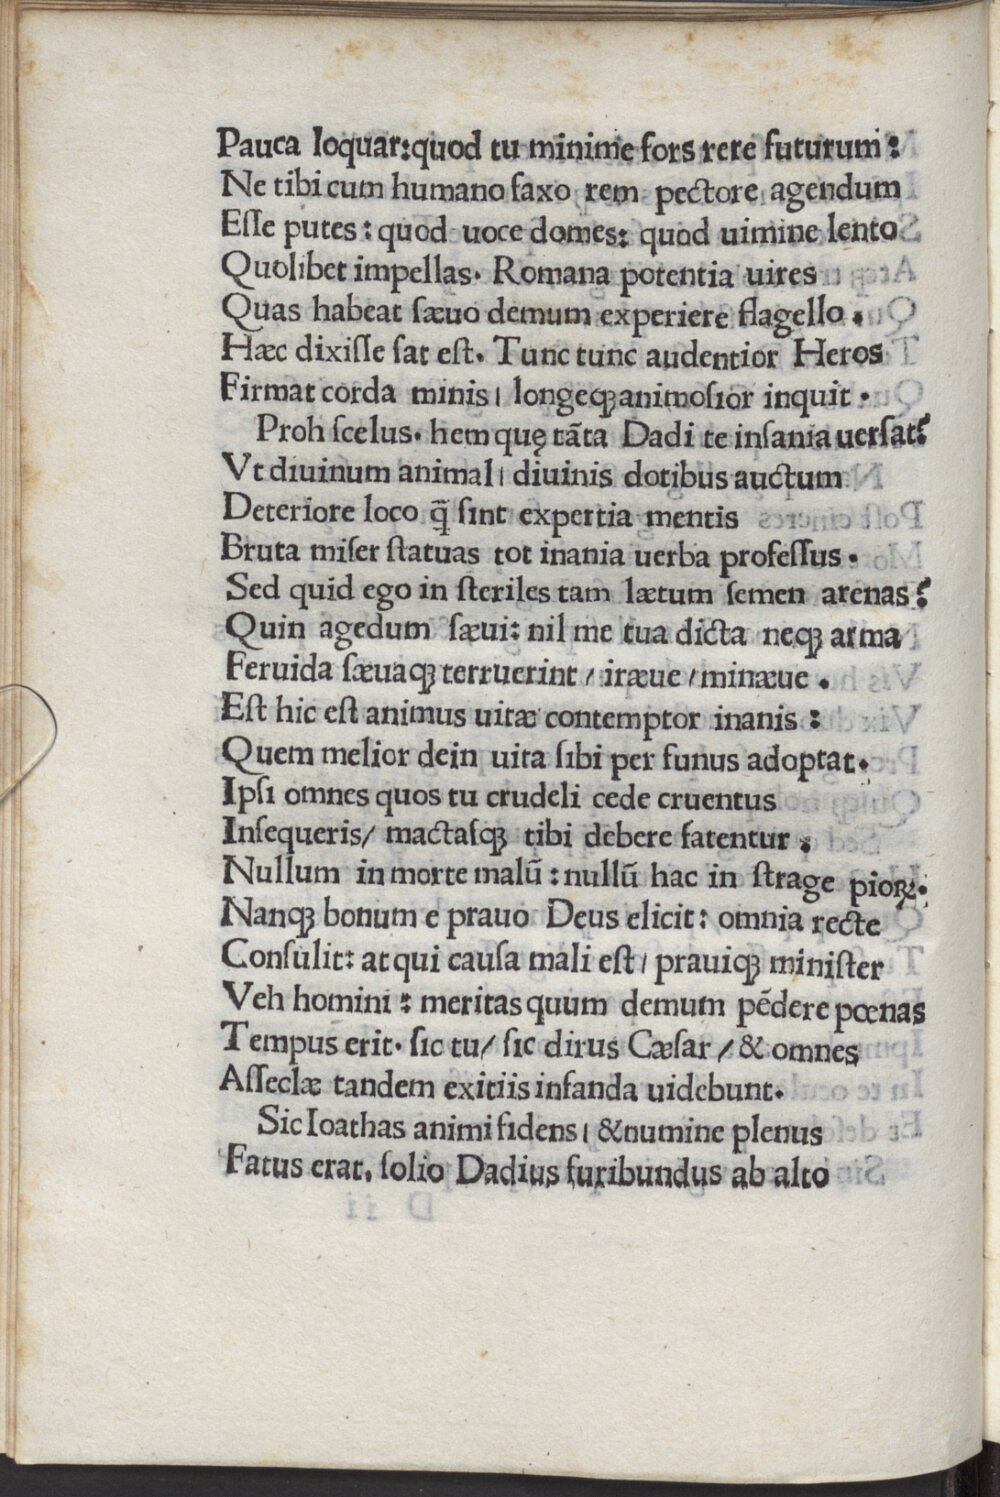 Pauca loquar:quod tu minime fors rere futurum:
Ne tibi cum humano ſaxo rem pectore agendum
Eſſe putes: quod uoce domes: quod uimine lento
Quolibet impellas. Romana potentia uires
Quas habeat ſæuo demum experiere flagello.
Hæc dixiſſe ſat eſt. Tunc tunc audentior Heros
Firmat corda minis/ longeqꝫ animoſior inquit.
Proh ſcelus. hem quę tãta Dadi te inſania uerſat?
Vt diuinum animal/ diuinis dotibus auctum
Deteriore loco q̃ ſint expertia mentis
Bruta miſer ſtatuas tot inania uerba profeſſus.
Sed quid ego in ſteriles tam lætum ſemen arenas?
Quin agedum ſæui: nil me tua dicta neqꝫ arma
Feruida ſæuaqꝫ terruerint/ iræue/minæue.
Eſt hic eſt animus uitæ contemptor inanis:
Quem melior dein uita ſibi per funus adoptat.
Ipſi omnes quos tu crudeli cede cruentus
Inſequeris/ mactaſqꝫ tibi debere fatentur.
Nullum in morte malũ: nullũ hac in ſtrage pioꝝ.
Nanqꝫ bonum e prauo Deus elicit: omnia recte
Conſulit: at qui cauſa mali eſt/ prauiqꝫ miniſter
Veh homini: meritas quum demum pẽdere pœnas
Tempus erit. ſic tu/ ſic dirus Cæſar/& omnes
Aſſeclæ tandem exitiis infanda uidebunt.
Sic Ioathas animi fidens/ &numine plenus
Fatus erat. ſolio Dadius furibundus ab alto